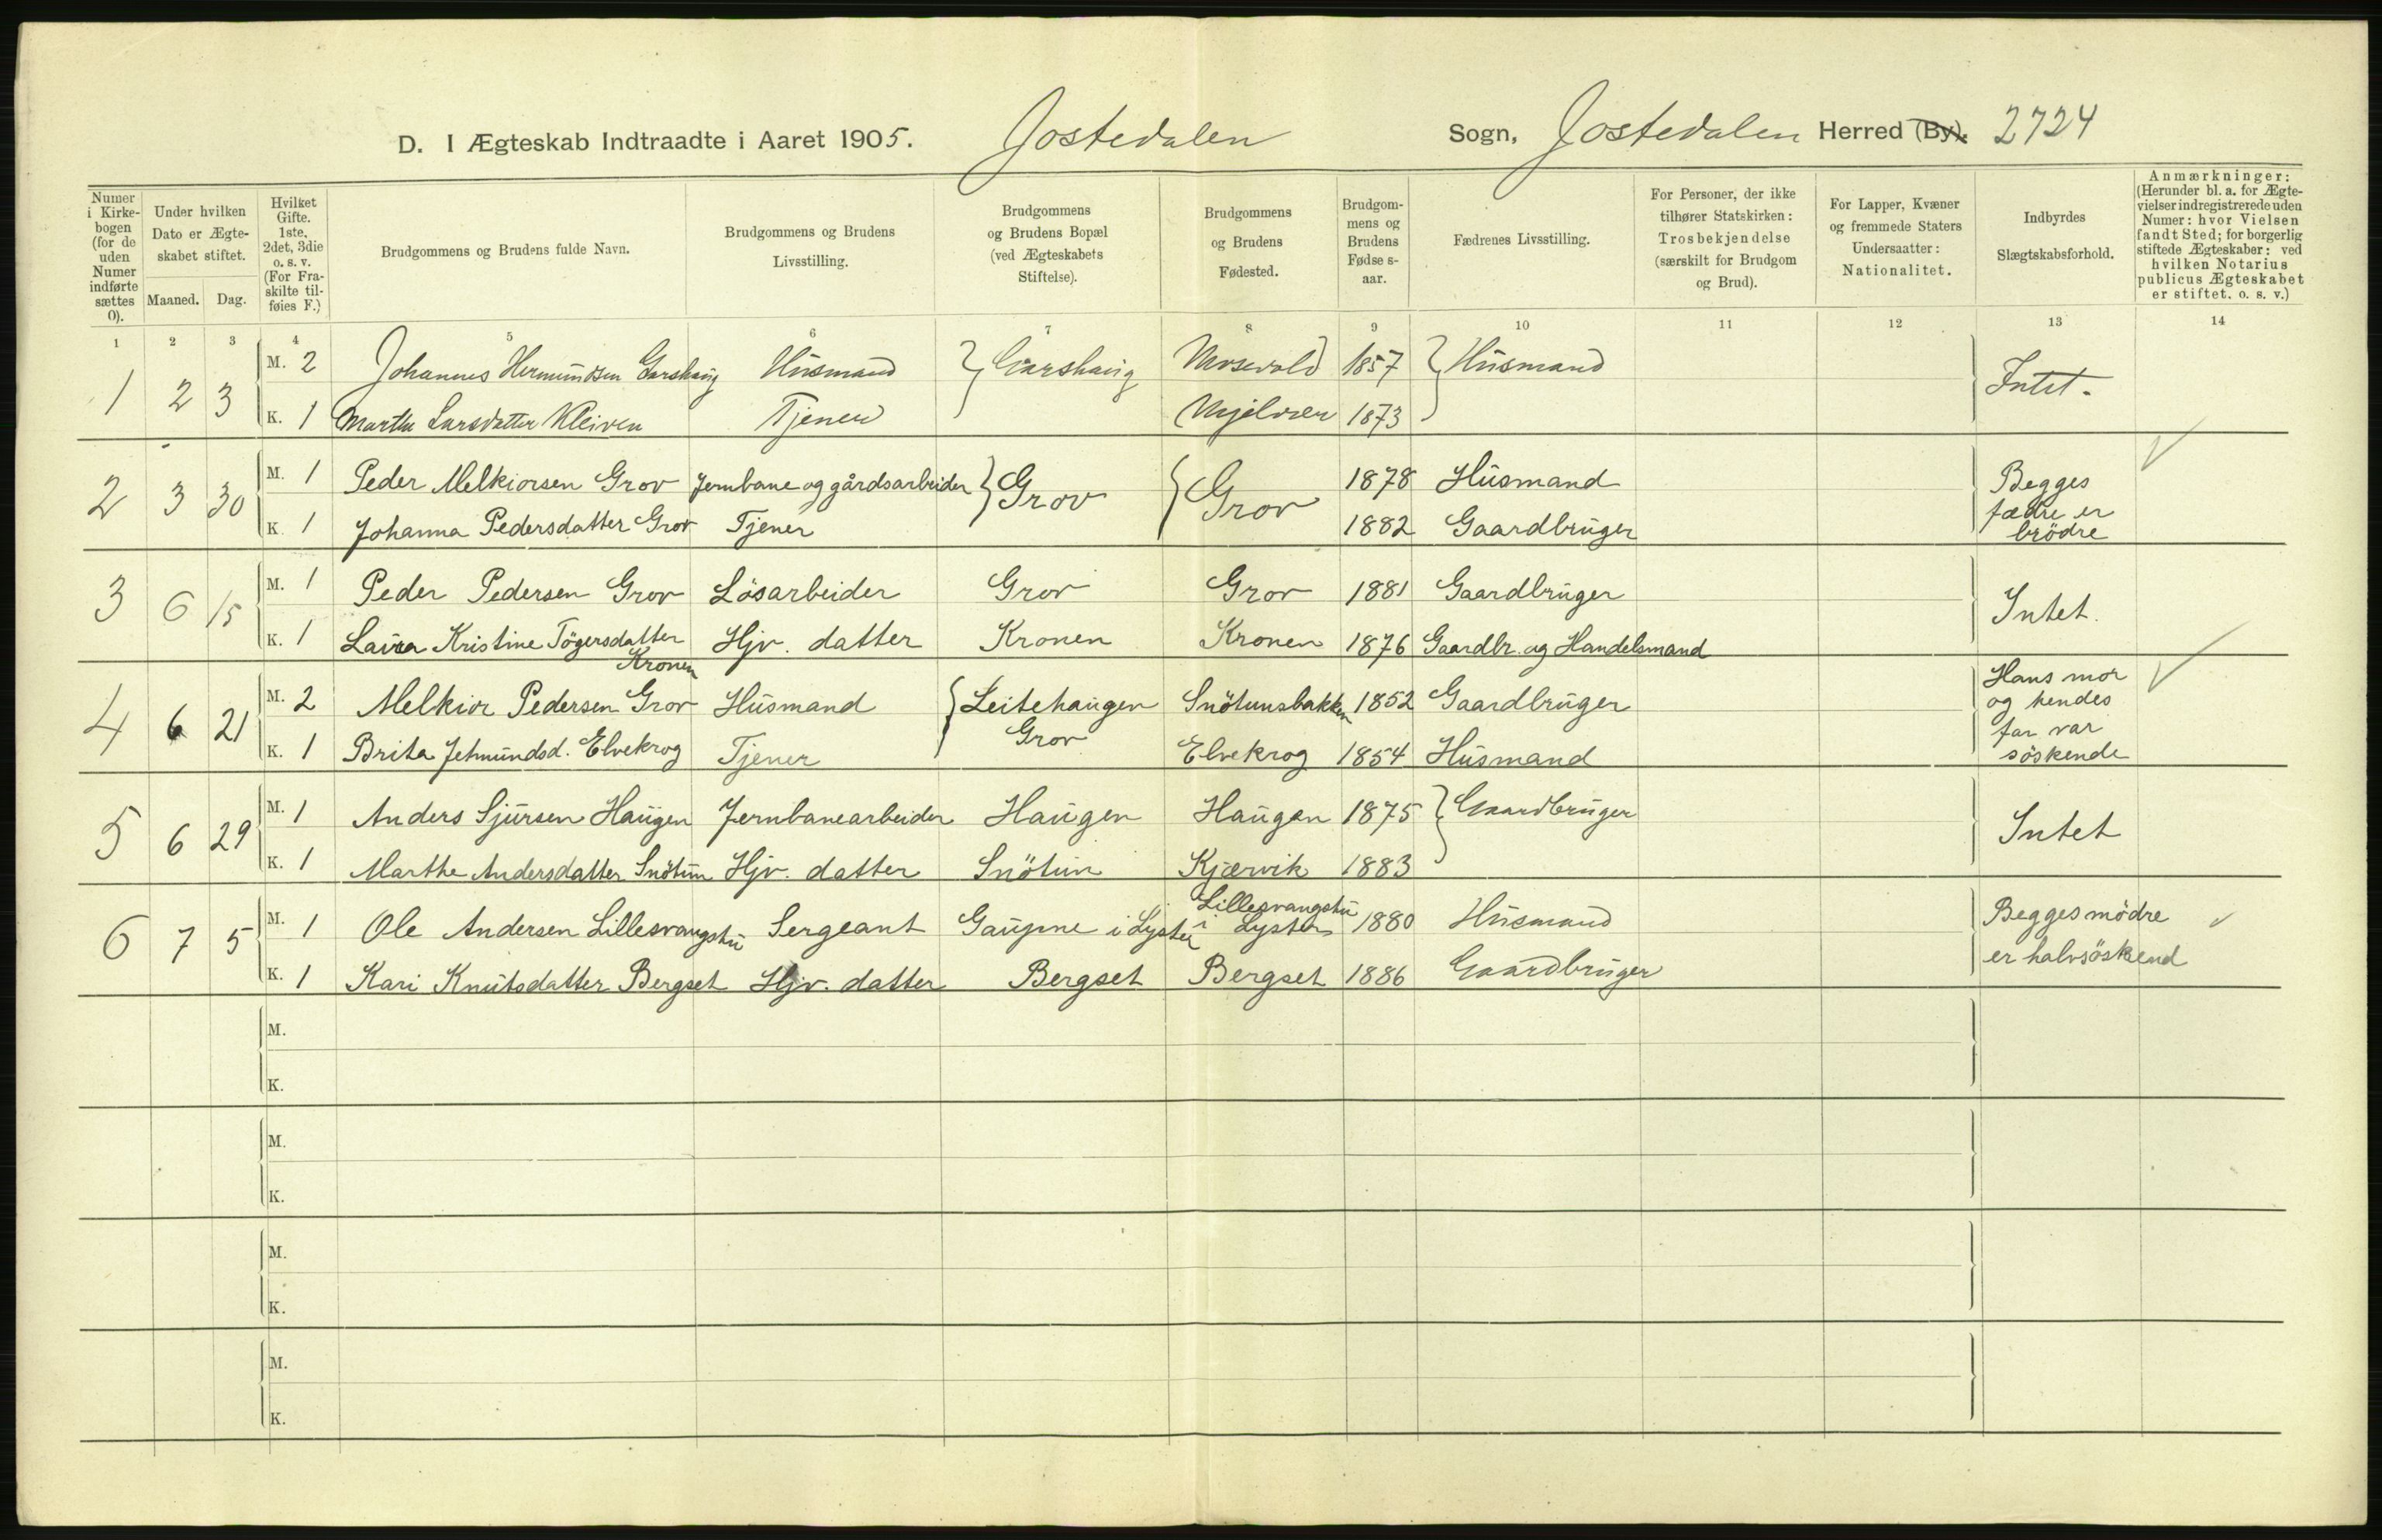 D. I Ægteskab Indtraadte i Aaret 1905. Jostedalen Sogn, Jostedalen Herred (By). 2724
Numer i Kirkebogen (for de uden Numer indførte sættes 0).
Under hvilken Dato er Ægteskabet stiftet.
Maaned. Dag.
Hvilket Gifte. 1ste, 2det, 3die o. s. v. (For Fraskilte tilføies F.)
Brudgommens og Brudens fulde Navn.
Brudgommens og Brudens Livsstilling.
Brudgommens og Brudens Bopæl (ved Ægteskabets Stiftelse).
Brudgommens og Brudens Fødested.
Brudgommens og Brudens Fødselsaar.
Fædrenes Livsstilling.
For Personer, der ikke tilhører Statskirken: Trosbekjendelse (særskilt for Brudgom og Brud).
For Lapper, Kvæner og fremmede Staters Undersaatter: Nationalitet.
Indbyrdes Slægtskabsforhold.
Anmærkninger: (Herunder bl. a. for Ægtevielser indregistrerede uden Numer: hvor Vielsen fandt Sted; for borgerlig stiftede Ægteskaber: ved hvilken Notarius publicus Ægteskabet er stiftet. o. s. v.)
1 2 3 4 5 6 7 8 9 10 11 12 13 14
1 2 3 M. 2 Johannes Hermundsen Garshaug Husmand Garshaug 1857 Husmand Intet.
K. 1 Marthe Larsdatter Kleiven Tjener Mjelver 1873
2 3 30 M. 1 Peder Melkiorsen Grov Jernbane og gårdsarbeider Grov Grov 1878 Husmand Begges fædre er brödre
K. 1 Johanna Pedersdatter Grov Tjener 1882 Gaardbruger
3 6 15 M. 1 Peder Pedersen Grov Lösarbeider Grov Grov 1881 Gaardbruger Intet.
K. 1 Laura Kristine Tögersdatter Kronen Hjv. datter Kronen Kronen 1876 Gaardbr. og Handelsmand
4 6 21 M. 2 Melkior Pedersen Grov Husmand Leitehaugen Grov Snötunsbakken 1852 Gaardbruger Hans mor og hendes far var söskende
K. 1 Brita Jetmundsd. Elvekrog Tjener Elvekrog 1854 Husmand
5 6 29 M. 1 Anders Sjursen Haugen Jernbanearbeider Haugen Haugen 1875 Gaardbruger Intet
K. 1 Marthe Andersdatter Snötun Hjv. datter Snötun Kjærvik 1883
6 7 5 M. 1 Ole Andersen Lillesvangstu Sergeant Gaupne i Lyster Lillesvangstu i Lyster 1880 Husmand Begges mödre er halvsöskend
K. 1 Kari Knutsdatter Bergset Hjv. datter Bergset Bergset 1886 Gaardbruger
M.
K.
M.
K.
M.
K.
M.
K.